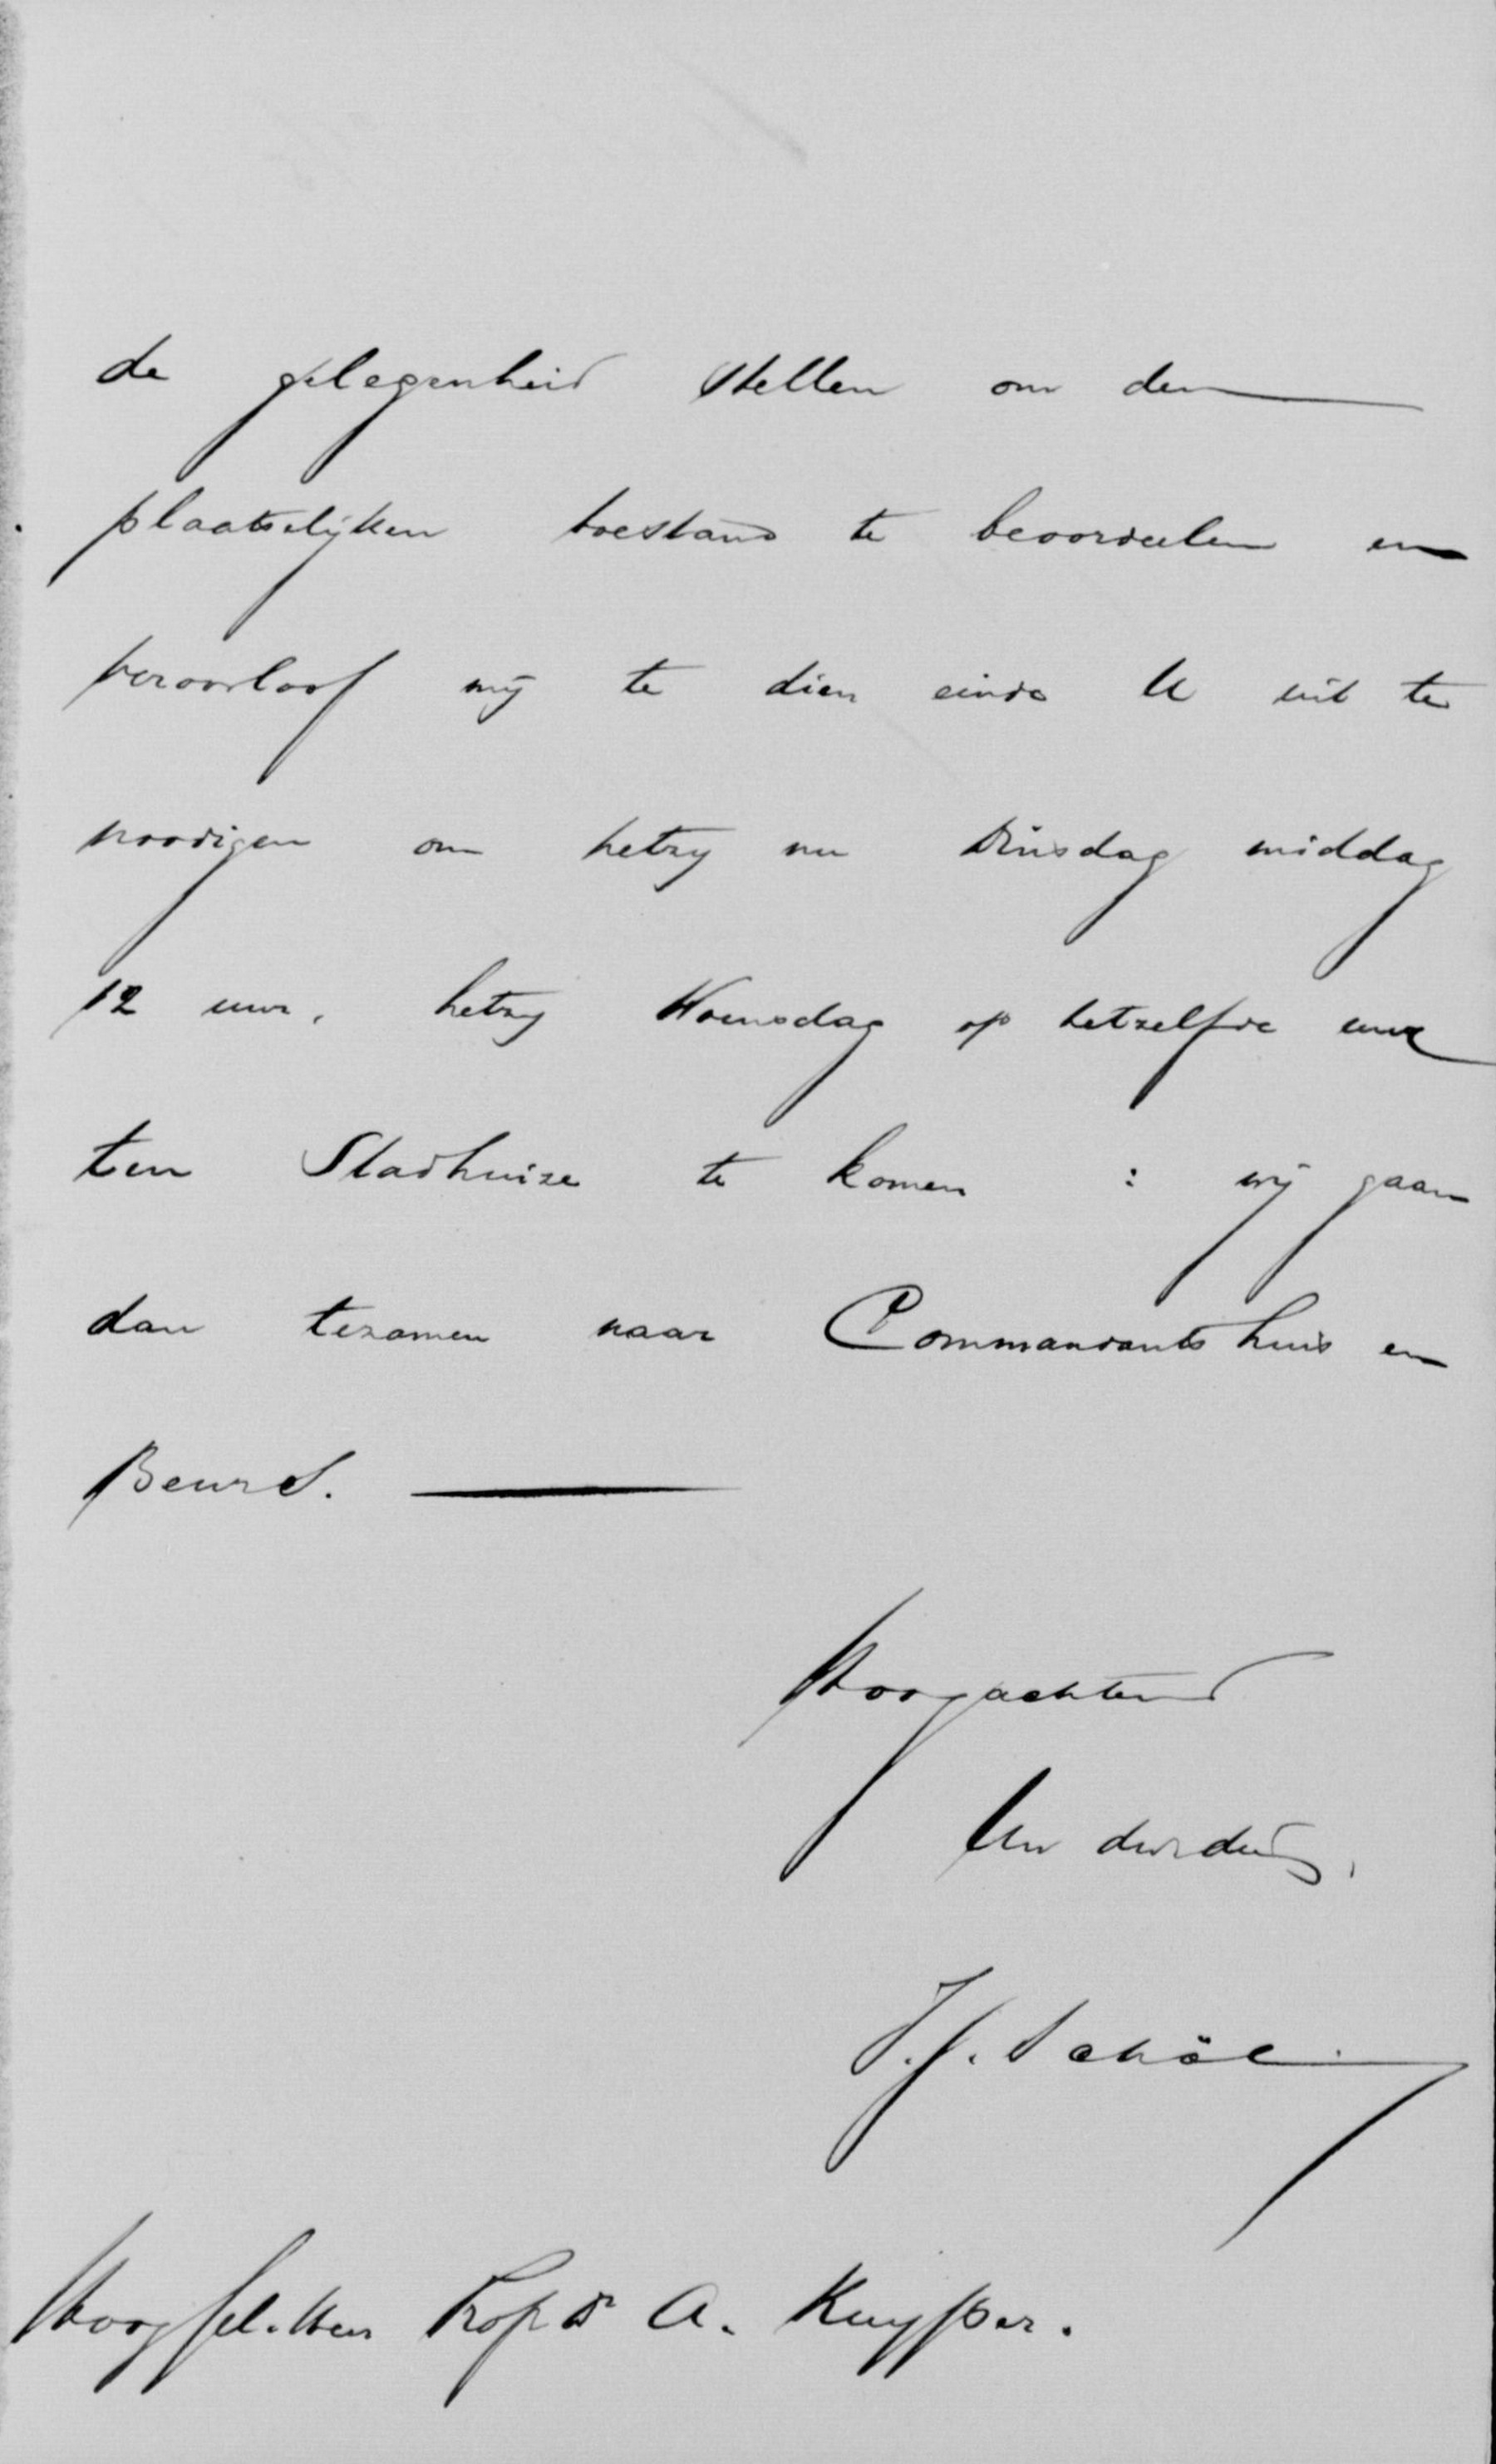 de gelegenheid stellen om den
plaatselijken toestand te beoordeelen en
veroorloof mij te dien einde U uit te
noodigen om hetzij nu Dinsdag middag
12 uur, hetzij Woensdag op hetzelfde uur
ten Stadhuize te komen : wij gaan
dan tezamen naar Commandantshuis en
Beurs.
Hoogachtend
Uw
Hoog Gel. Heer Prof Dr A. Kuyper.